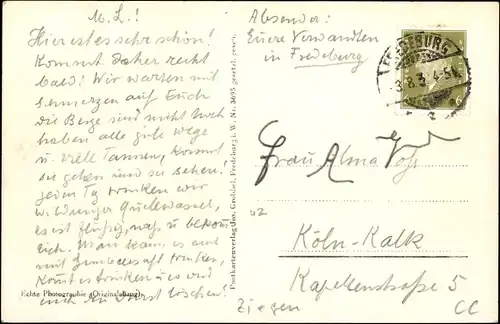 M. L.!
Hier ist es sehr schön!
Kommt daher recht
bald! Wir warten mit
Schmerzen auf Euch
die Berge sind nicht hoch
haben alle gute Wege
u. viele Tannen, kommt
sie gehen und zu sehen.
jeden Tag trinken wir
Quellwasser,
es ist flüssig, naß u beköm
lich. Man kann es auch
mit trinken,
kommt es trinken u es wird
euch den Durst löschen!
Echte Photographie (Originalabzug)
Postkartenverlag Jos. Grobbel, Fredeburg i. W. Nr. 3695 gesetzl. gesch.
Absender:
Euere Verwandten
in Fredeburg
FREDEBURG
3.8.3 4-5
Frau Alma Voß
Köln-Kalk
Kapellenstraße 5
Ziegen
CC